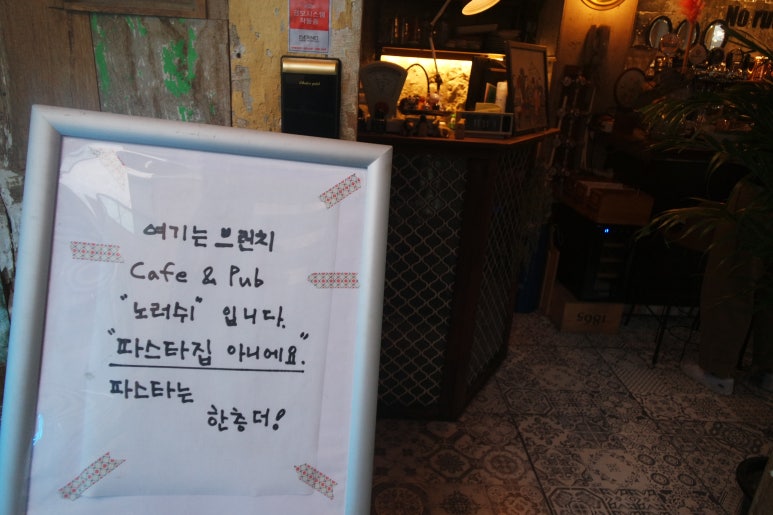 No ru
여기는 브런치
Cafe & Pub
"노러쉬" 입니다.
"파스타집 아니에요."
파스타는
한층더!